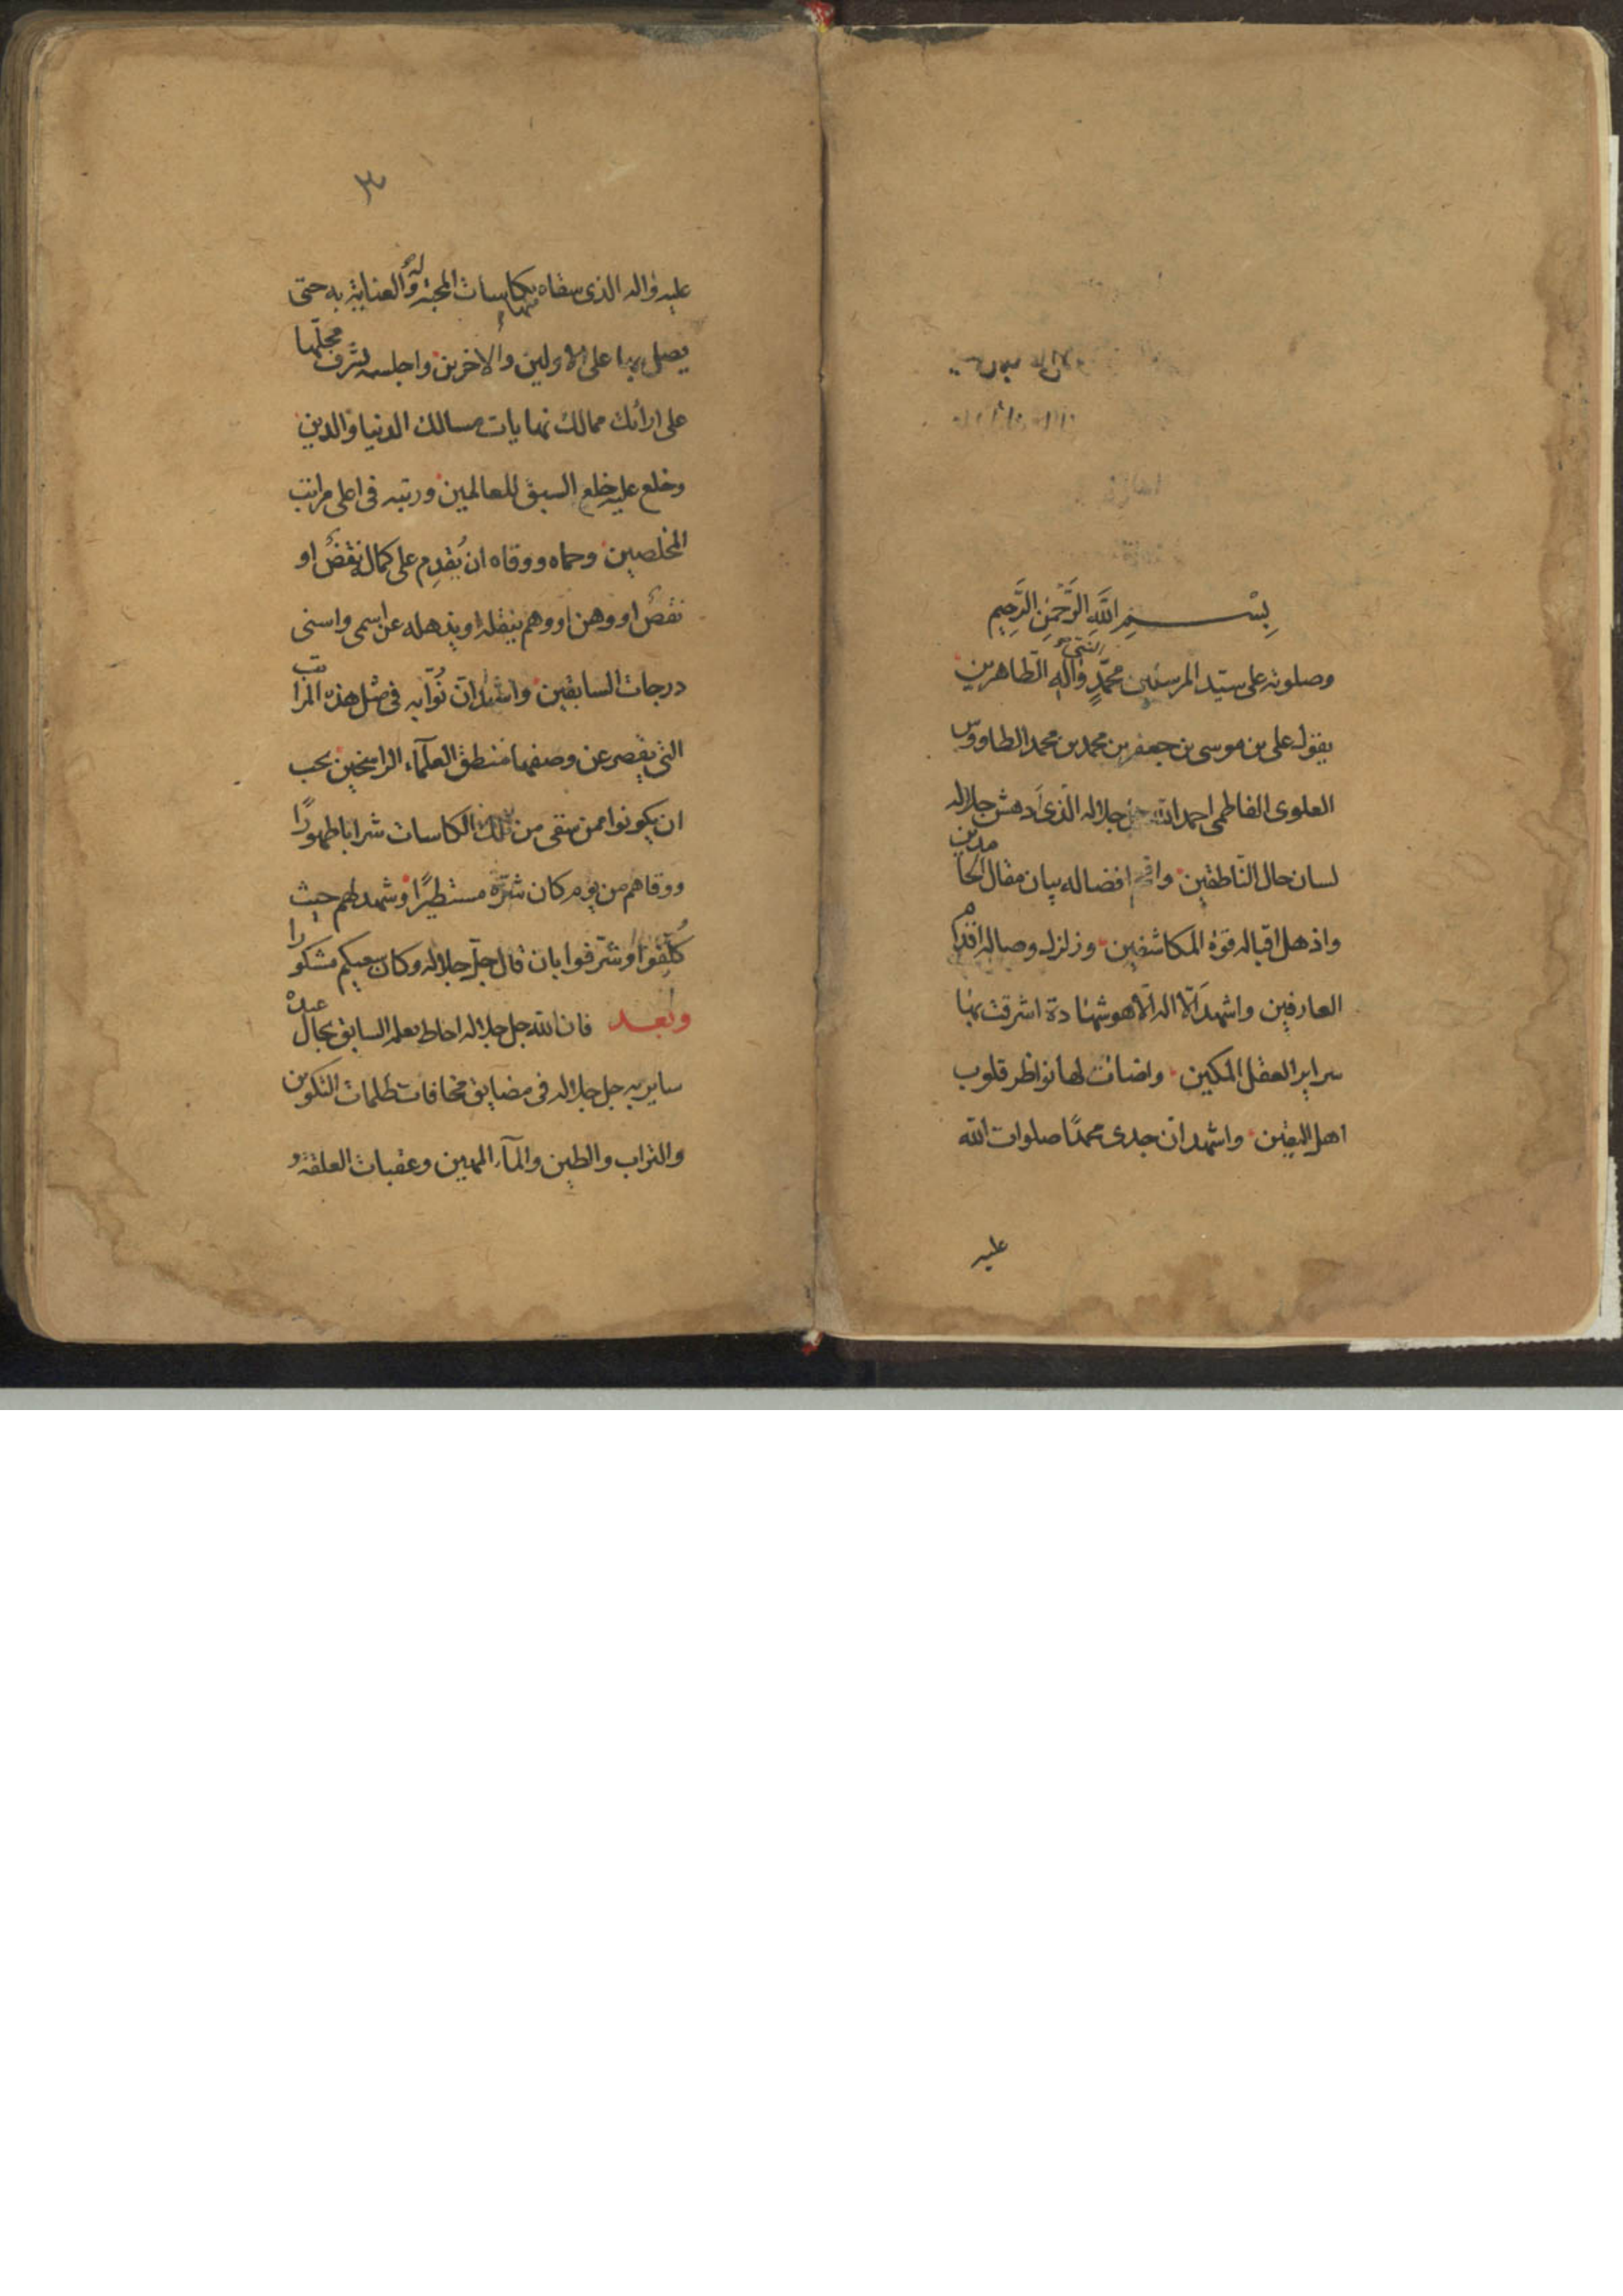 بِسْمِ اللَّهِ الرَّحْمٰنِ الرَّحِيمِ
وصلوته على سيّد المرسلين محمّدٍ النبي وآلهِ الطّاهرين
يقول على بن موسى بن جعفر بن محمد بن محمد الطاووس
العلوى الفاطمى احمد الله جل جلاله الّذى أدهش جلاله
لسان حال النّاطقين وافحم افضاله بيان مقال الحامدين
واذهل اقباله قوة المكاشفين وزلزل وصاله اقدام
العارفين واشهد ألّا اله الّا هو شهادة اشرقت بها
سراير العقل المكين واضاءت لها نواظر قلوب
اهل اليقين واشهد انّ جدى محمدًا صلوات الله
عليه
٣
عليه واله الذى سقاه بكاسات المحبة له والعناية به حتى
يصل بها على الاولين والاخرين واجلسه لشرف محلّها
على ارائك ممالك نهايات مسالك الدنيا والدين
وخلع عليه خلع السبق للعالمين ورتبه فى اعلى مراتب
المخلصين وحماه ووقاه ان يُقدِم على كماله نقضٌ او
نقصٌ او وهن او وهم ينقله او يذهله عن اسمى واسنى
درجات السابقين واشهد انّ نُوّابه فى مثل هذه المراتب
التى يقصر عن وصفها منطق العلمآء الراسخين يجب
ان يكونوا ممن سقى من تلك الكاسات شرابا طهورًا
ووقاهم من يوم كان شرّه مستطيرًا وشهد لهم حيث
كُلِّفوا وشرّفوا بان قال جلّ جلاله وكان سعيكم مشكورا
وبعد فان الله جل جلاله احاط بعلمه السابق بحال عبده
سايربه جل جلاله فى مضايق مخافات ظلمات التكوين
والتراب والطين والمآء المهين وعقبات العلقة و